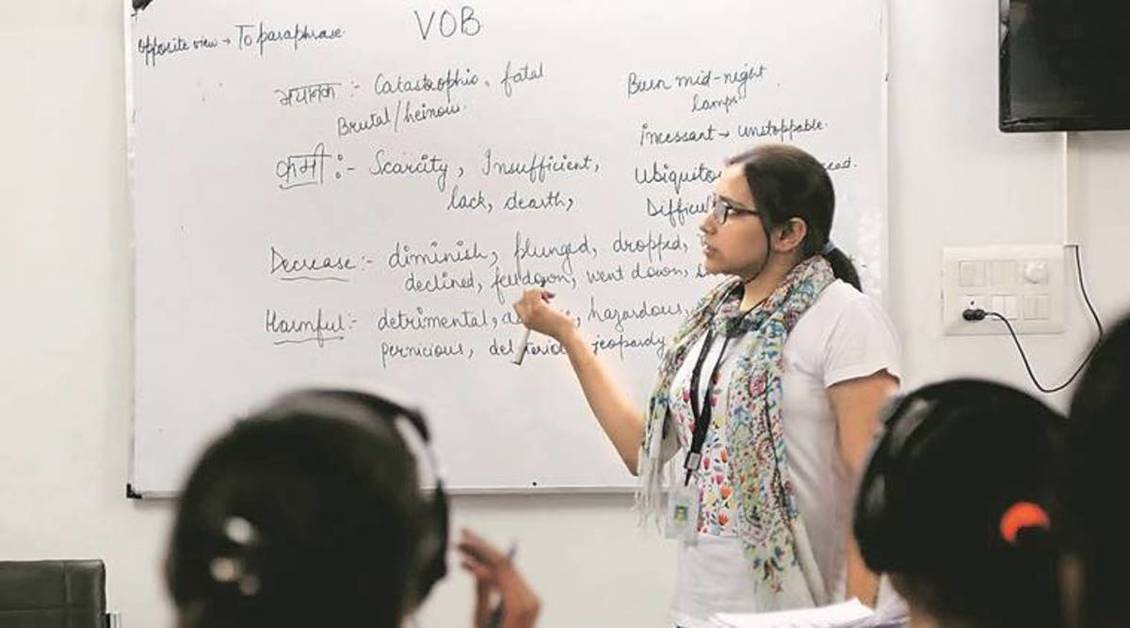 VOB
Opposite view → To paraphrase
भयानक :- Catastrophic, fatal
Brutal/heinous.
कमी :- Scarcity, Insufficient,
lack, dearth,
Decrease :- diminish, plunged, dropped,
declined, fell down, went down,
Harmful :- detrimental, hazardous,
pernicious, jeopardy
Burn mid-night
lamps
Incessant → unstoppable.